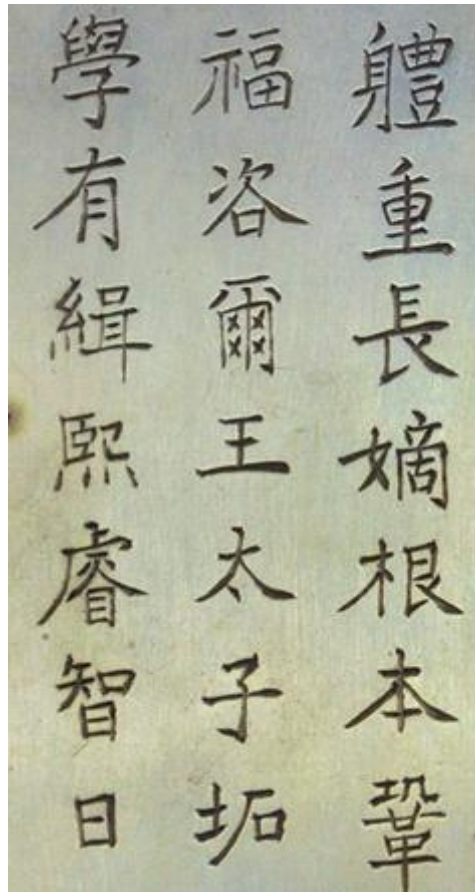 軆重長嫡根本鞏
福咨爾王太子坧
學有緝熙睿智日